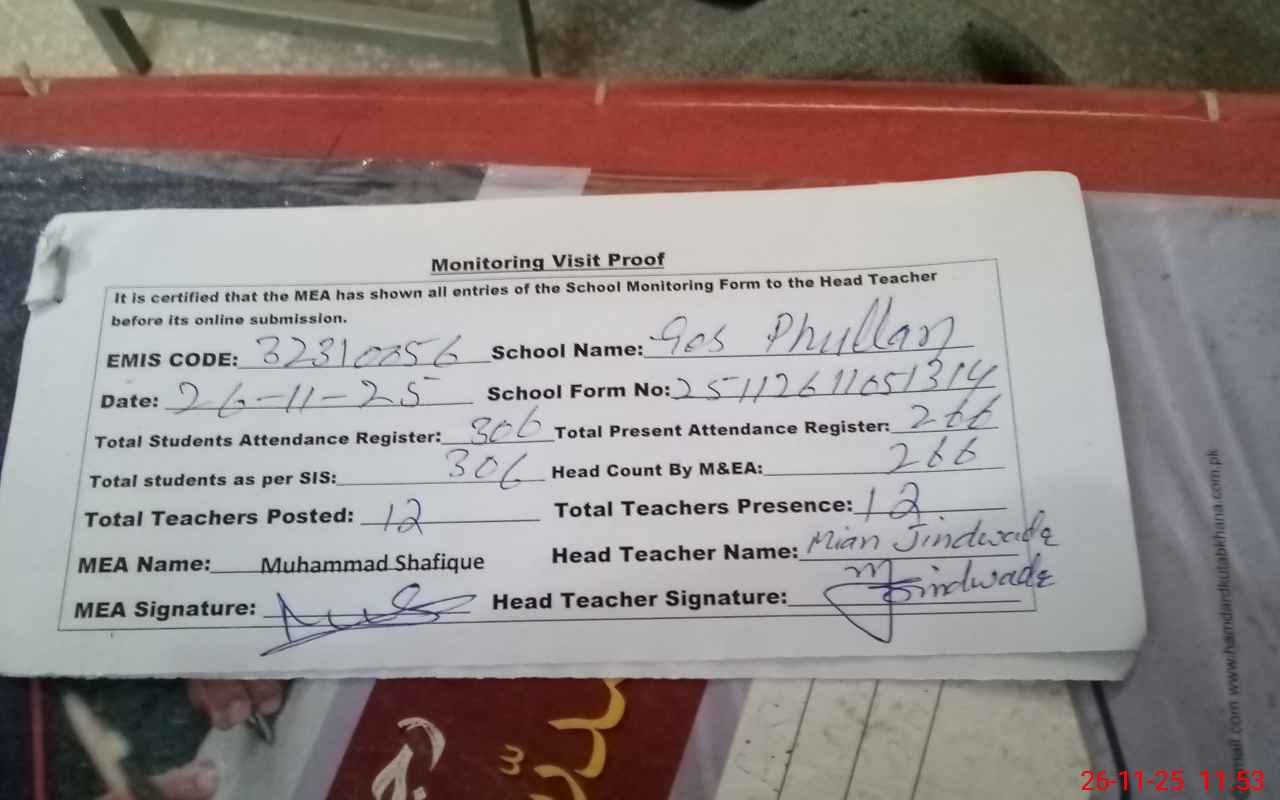 Monitoring Visit Proof
It is certified that the MEA has shown all entries of the School Monitoring Form to the Head Teacher
before its online submission.
EMIS CODE: 32310056 School Name: 90s Phullan
Date: 26-11-25 School Form No: 25112611051314
Total Students Attendance Register: 306 Total Present Attendance Register: 266
Total students as per SIS: 306 Head Count By M&EA: 266
Total Teachers Posted: 12 Total Teachers Presence: 12
MEA Name: Muhammad Shafique Head Teacher Name: Mian Jindwada
MEA Signature: Head Teacher Signature: M Jindwada
www.hamdardkutabkhana.com.pk
26-11-25 11.53